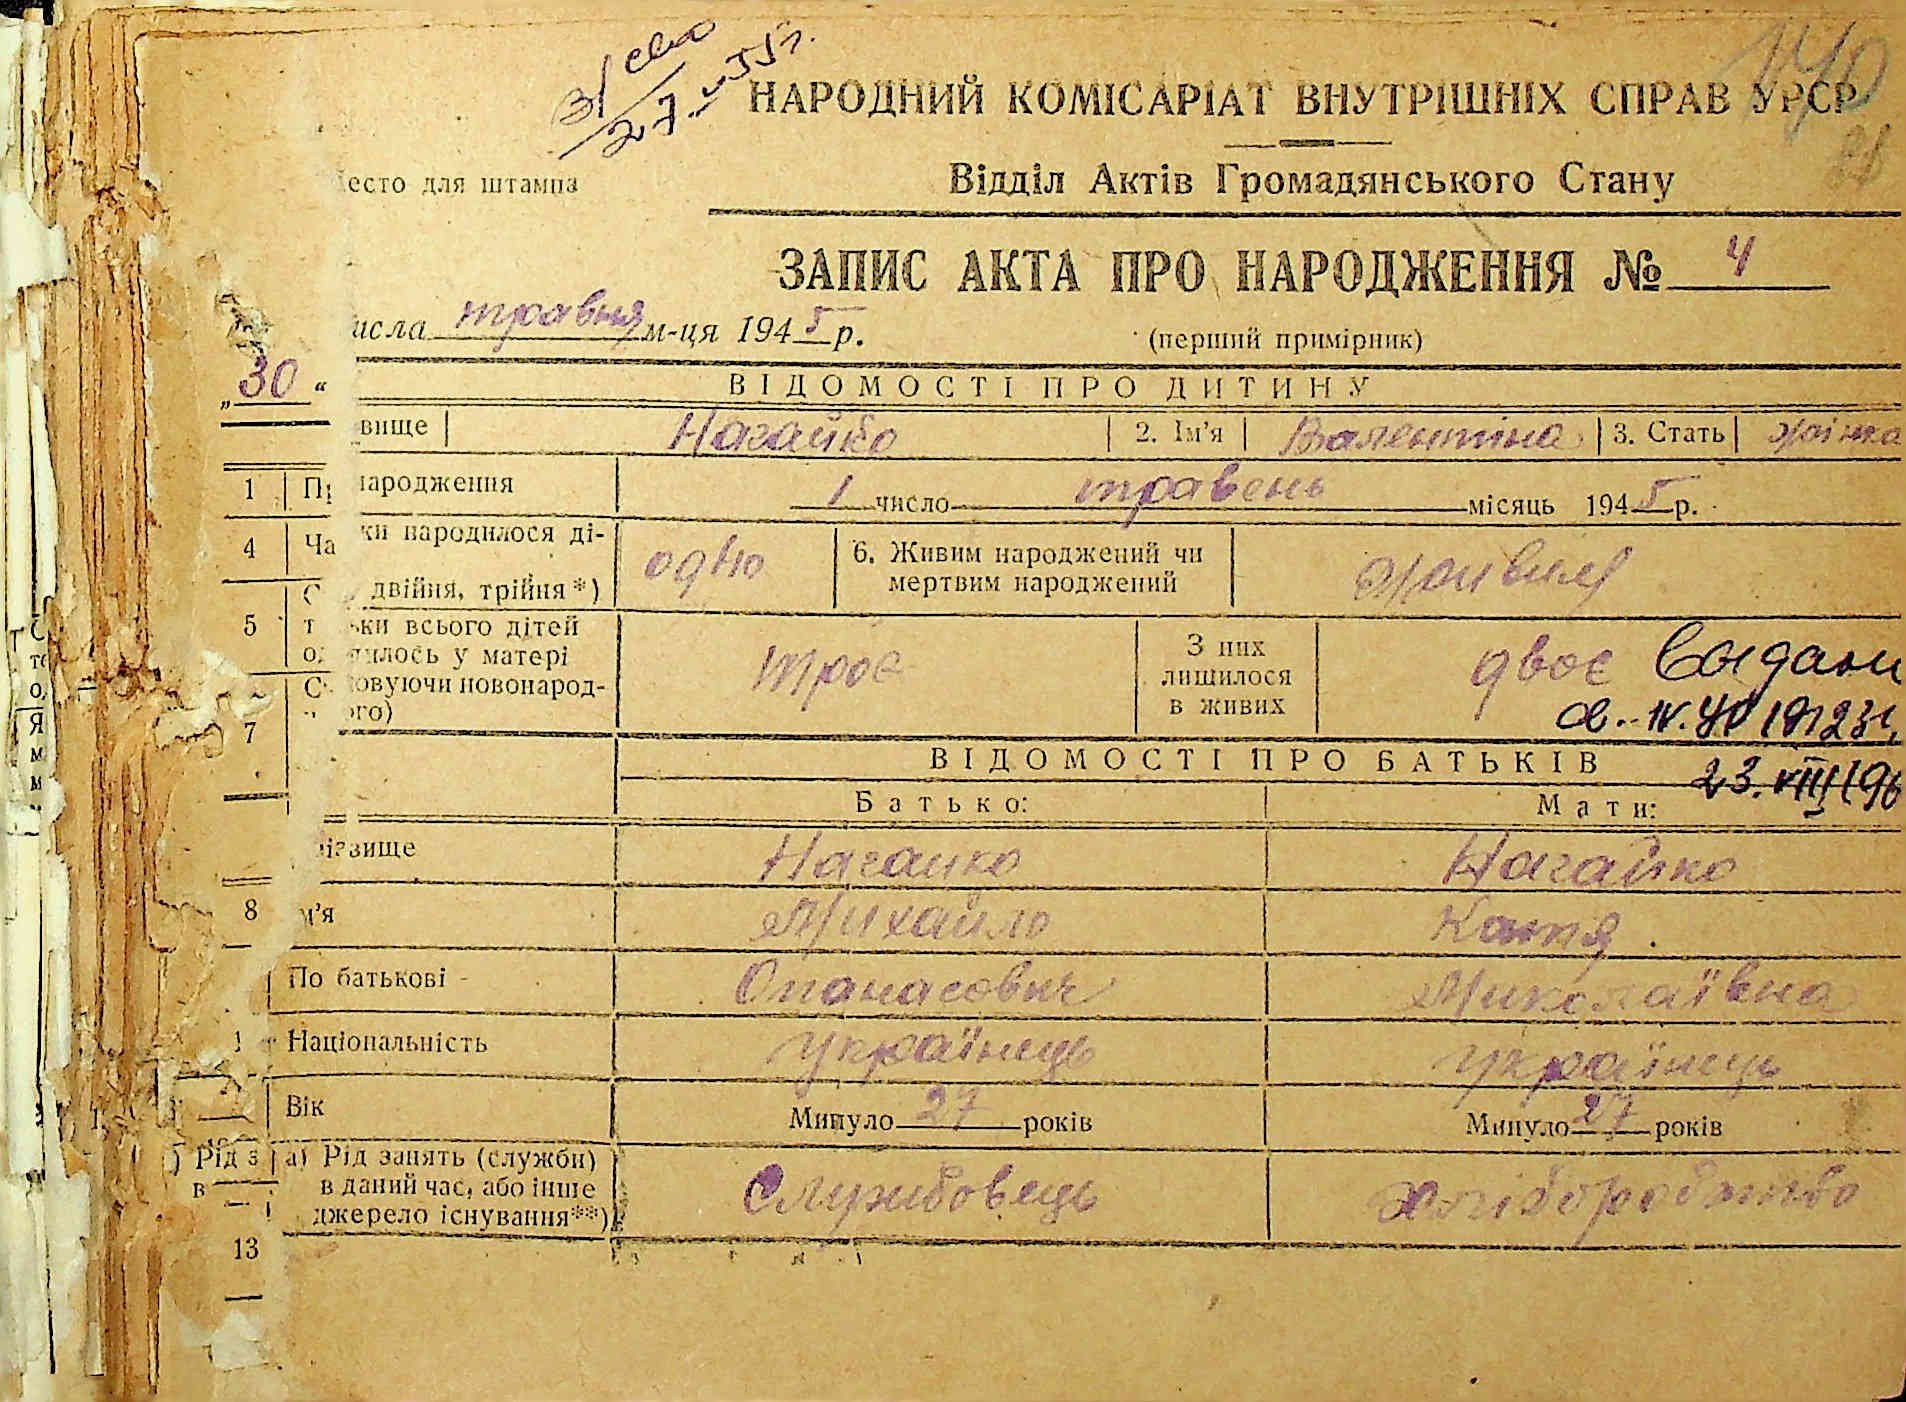 НАРОДНИЙ КОМІСАРІАТ ВНУТРІШНІХ СПРАВ УРСР
есто для штампа
Відділ Актів Громадянського Стану
ЗАПИС АКТА ПРО НАРОДЖЕННЯ № 4
„30“ исла травня м-ця 1945 р.
(перший примірник)
ВІДОМОСТІ ПРО ДИТИНУ
вище Нагайко 2. Ім'я Валентіна 3. Стать жінка
1 народження 1 число травень місяць 1945 р.
4 ки народилося ді-
двійня, трійня*) одно 6. Живим народжений чи мертвим народжений живим
5 ки всього дітей
илось у матері
овуючи новонарод-
ого) троє З них лишилося в живих двоє
7
23. VIII 196
ВІДОМОСТІ ПРО БАТЬКІВ
Батько: Мати:
ізвище Нагайко Нагайко
8 м'я Михайло Катя
По батькові Опанасович Миколаївна
Національність українець українець
Вік Минуло 27 років Минуло 27 років
Рід з а) Рід занять (служби)
в в даний час, або інше
джерело існування**) Службовець хліборобство
13